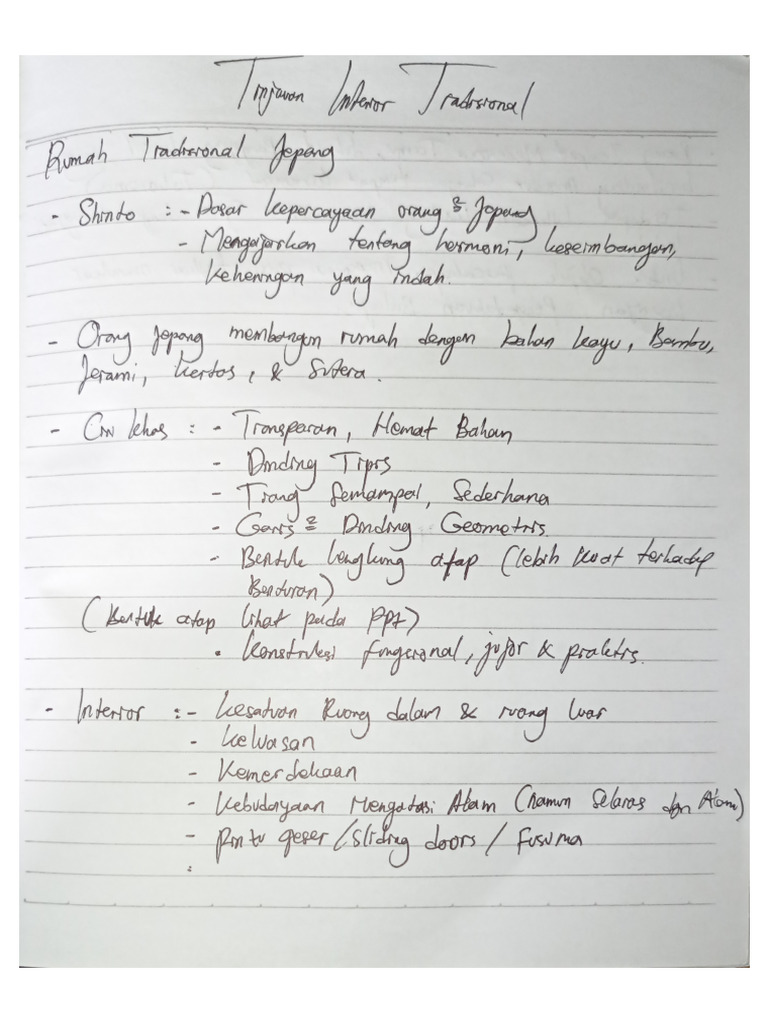 Tinjauan Interior Tradisional
Rumah Tradisional Jepang
- Shinto : - Dasar kepercayaan orang² Jepang
- Mengajarkan tentang harmoni, keseimbangan,
keheningan yang indah.
- Orang Jepang membangun rumah dengan bahan kayu, Bambu,
Jerami, kertas, & Sutera.
- Ciri khas : - Transparan, Hemat Bahan
- Dinding Tipis
- Tiang Semampai, Sederhana
- Garis² Dinding Geometris
- Bentuk lengkung atap (lebih kuat terhadap
Benturan)
(Bentuk atap lihat pada ppt)
- Konstruksi fungsional, jujur & praktis.
- Interior : - Kesatuan Ruang dalam & ruang luar
- Keluasan
- Kemerdekaan
- Kebudayaan Mengatasi Alam (namun Selaras dgn Alam)
- Pintu geser / Sliding doors / Fusuma